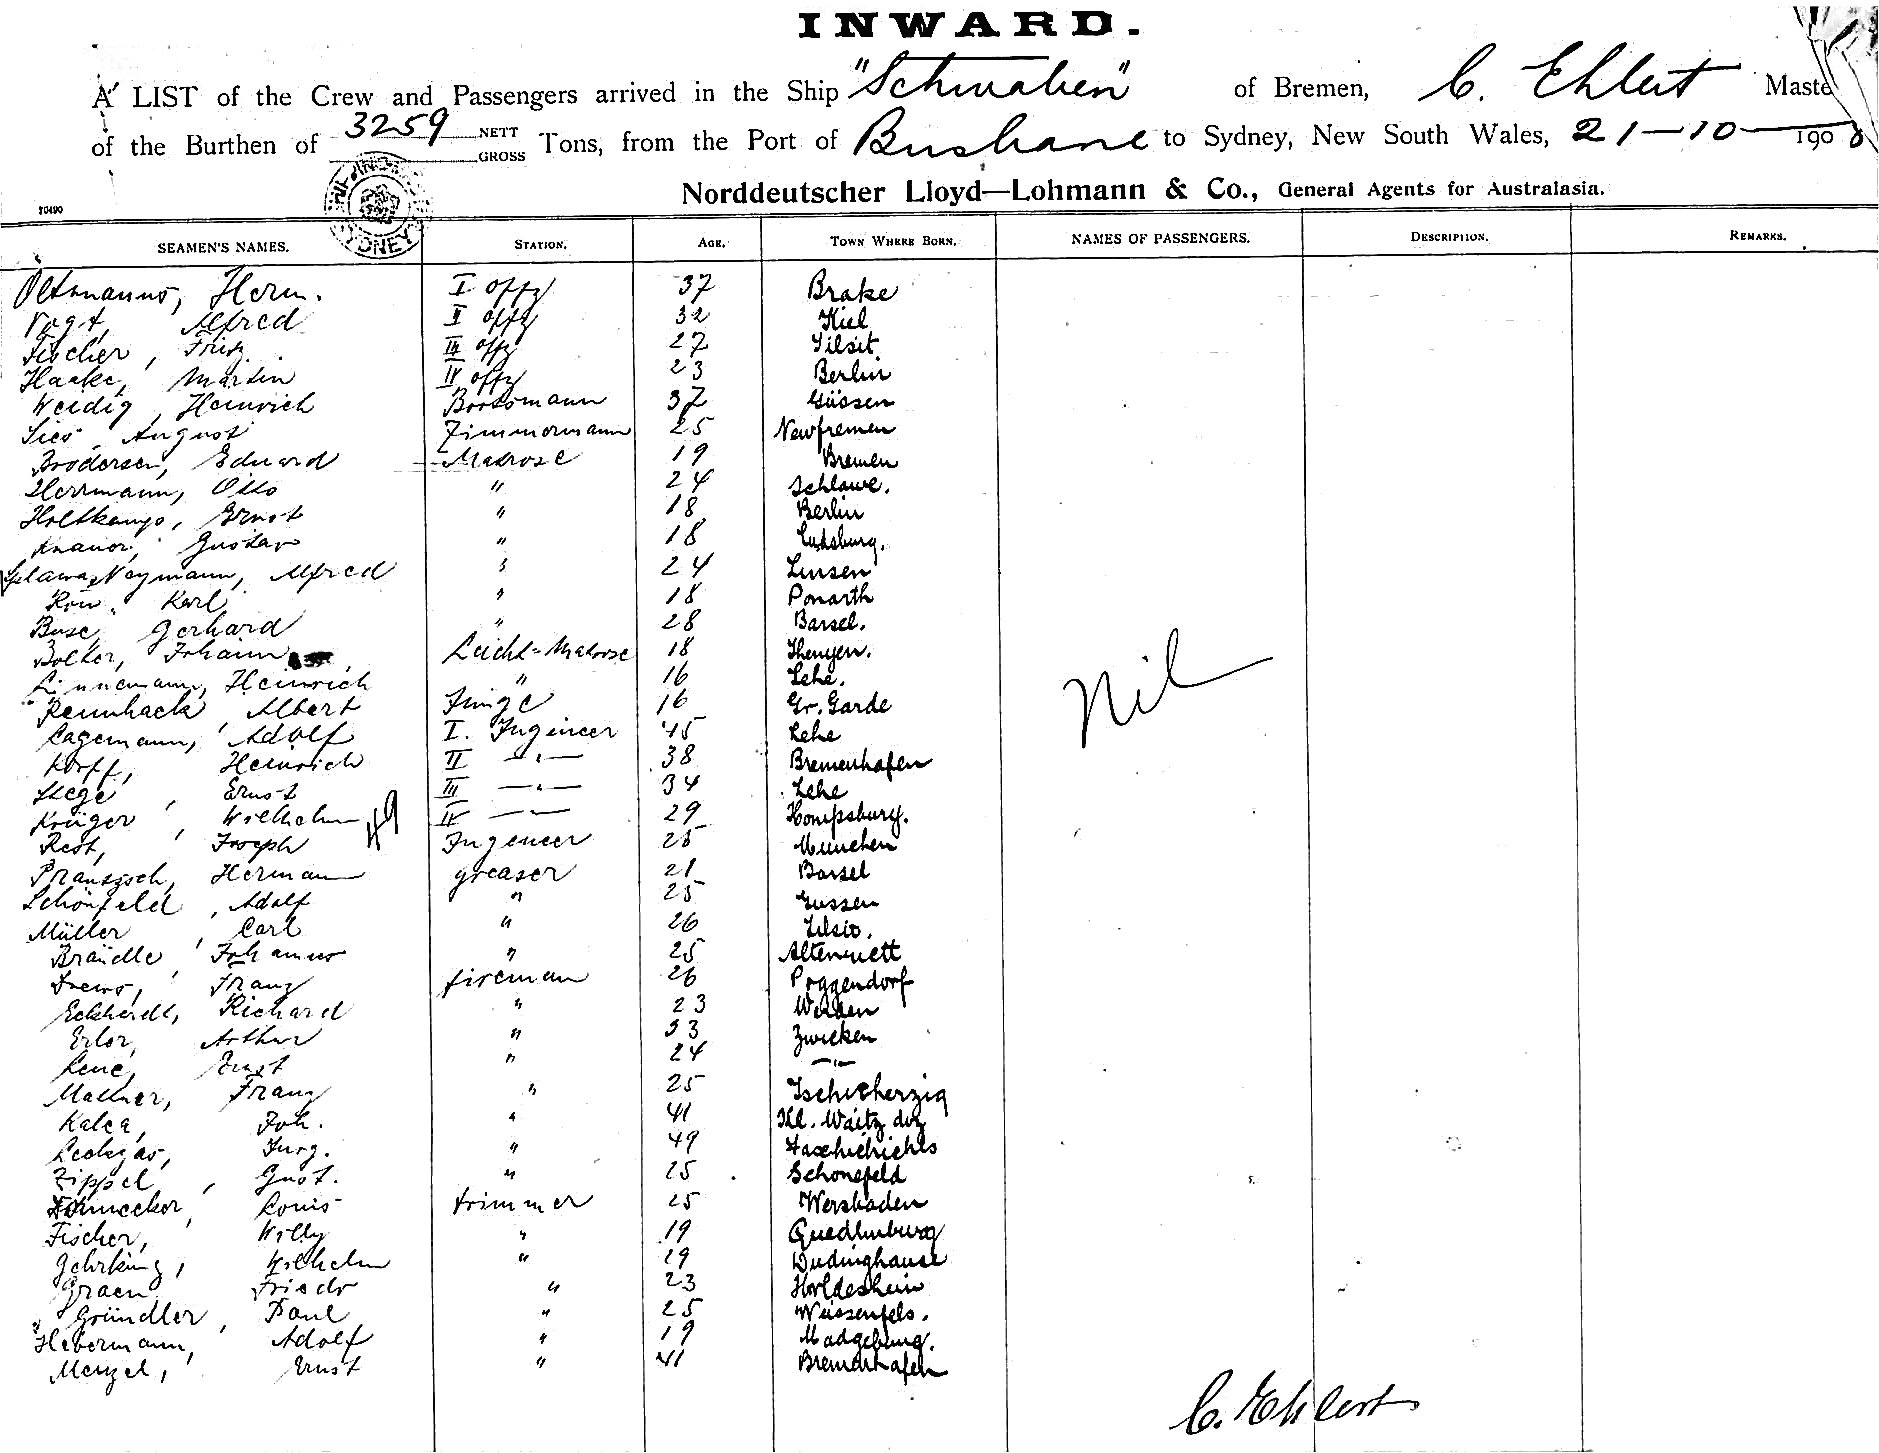 INWARD.
A LIST of the Crew and Passengers arrived in the Ship "Schwaben" of Bremen, C. Ehlert Maste
of the Burthen of 3259 NETT GROSS Tons, from the Port of Brisbane to Sydney, New South Wales, 21-10- 1908
Norddeutscher Lloyd—Lohmann & Co., General Agents for Australasia.
SYDNEY
SEAMEN'S NAMES. STATION. AGE. TOWN WHERE BORN. NAMES OF PASSENGERS. DESCRIPTION. REMARKS.
Oltmanns, Herm. I offz 37 Brake
Vogt, Alfred II offz 32 Kiel
Fischer, Fritz III offz 27 Tilsit
Haake, Martin IV offz 23 Berlin
Weidig, Heinrich Bootsmann 37 Güssen
Sies, August Zimmermann 25 Newfremen
Brodersen, Eduard Matrose 19 Bremen
Herrmann, Otto " 24 Schlawe.
Holtkamp, Ernst " 18 Berlin
Knauer, Gustav " 18
Neymann, Alfred " 24 Linsen
Karl " 18 Ponarth
Buse, Gerhard " 28 Barsel.
Bolter, Johann Leicht-Matrose 18
Linnemann, Heinrich " 16 Lehe.
Rennhack, Albert Junge 16 Gr. Garde
Lagemann, Adolf I. Ingineer 45 Lehe
Korff, Heinrich II —"— 38 Bremenhafen
Stege, Ernst III —"— 34 Lehe
Krüger, Wilhelm IV —"— 29
49
Rest, Joseph Ingeneer 25 München
Herman greaser 21 Barsel
Schönfeld, Adolf " 25 Gussen
Müller, Carl " 26 Tilsit.
Brändle, Johannes " 25
Franz fireman 26 Poggendorf
Eckhardt, Richard " 23 Werden
Erler, Arthur " 33 Zwicken
Lene, Ernst " 24 —"—
Mallner, Franz " 25 Tschicherzig
Kalea, Joh. " 41
Jurg. " 49
Zippel, Gust. " 25 Schonefeld
Louis trimmer 25 Wersbaden
Fischer, Willy " 19 Quedlinburg
Gehrking, Wilhelm " 29 Dudinghause
Graen, Friedr " 23 Horldeshein
Gründler, Paul " 25 Weissenfels.
Hebermann, Adolf " 19 Madgeburg.
Menzel, Ernst " 41 Bremerhafen
Nil
C. Ehlert